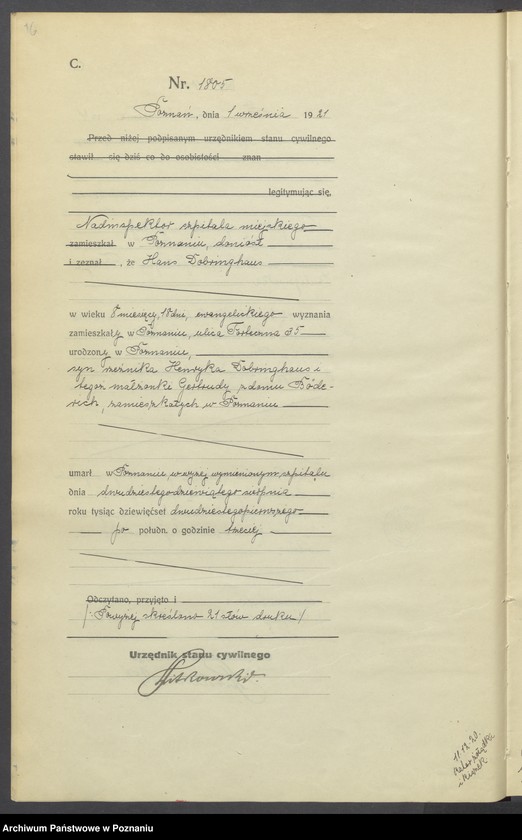 C.
Nr. 1805
Poznań, dnia 1 września 1921
Przed niżej podpisanym urzędnikiem stanu cywilnego
stawił się dziś co do osobistości znan
legitymując się,
Nadinspektor szpitala miejskiego
zamieszkał w Poznaniu, doniósł
i zeznał, że Hans Dobringhaus
w wieku miesięcy, 18 dni, ewangelickiego wyznania
zamieszkały w Poznaniu, ulica Forteczna 35
urodzony w Poznaniu,
syn rzeźnika Henryka Dobringhaus i
tegoż małżonki Gertrudy z domu Böde-
rich, zamieszkałych w Poznaniu
umarł w Poznaniu, w wyżej wymienionym szpitalu
dnia dwudziestego dziewiątego sierpnia
roku tysiąc dziewięćset dwudziestego pierwszego
po połudn. o godzinie trzeciej
Odczytano, przyjęto i
/: Powyżej skreślono 21 słów druku /
Urzędnik stanu cywilnego
Archiwum Państwowe w Poznaniu